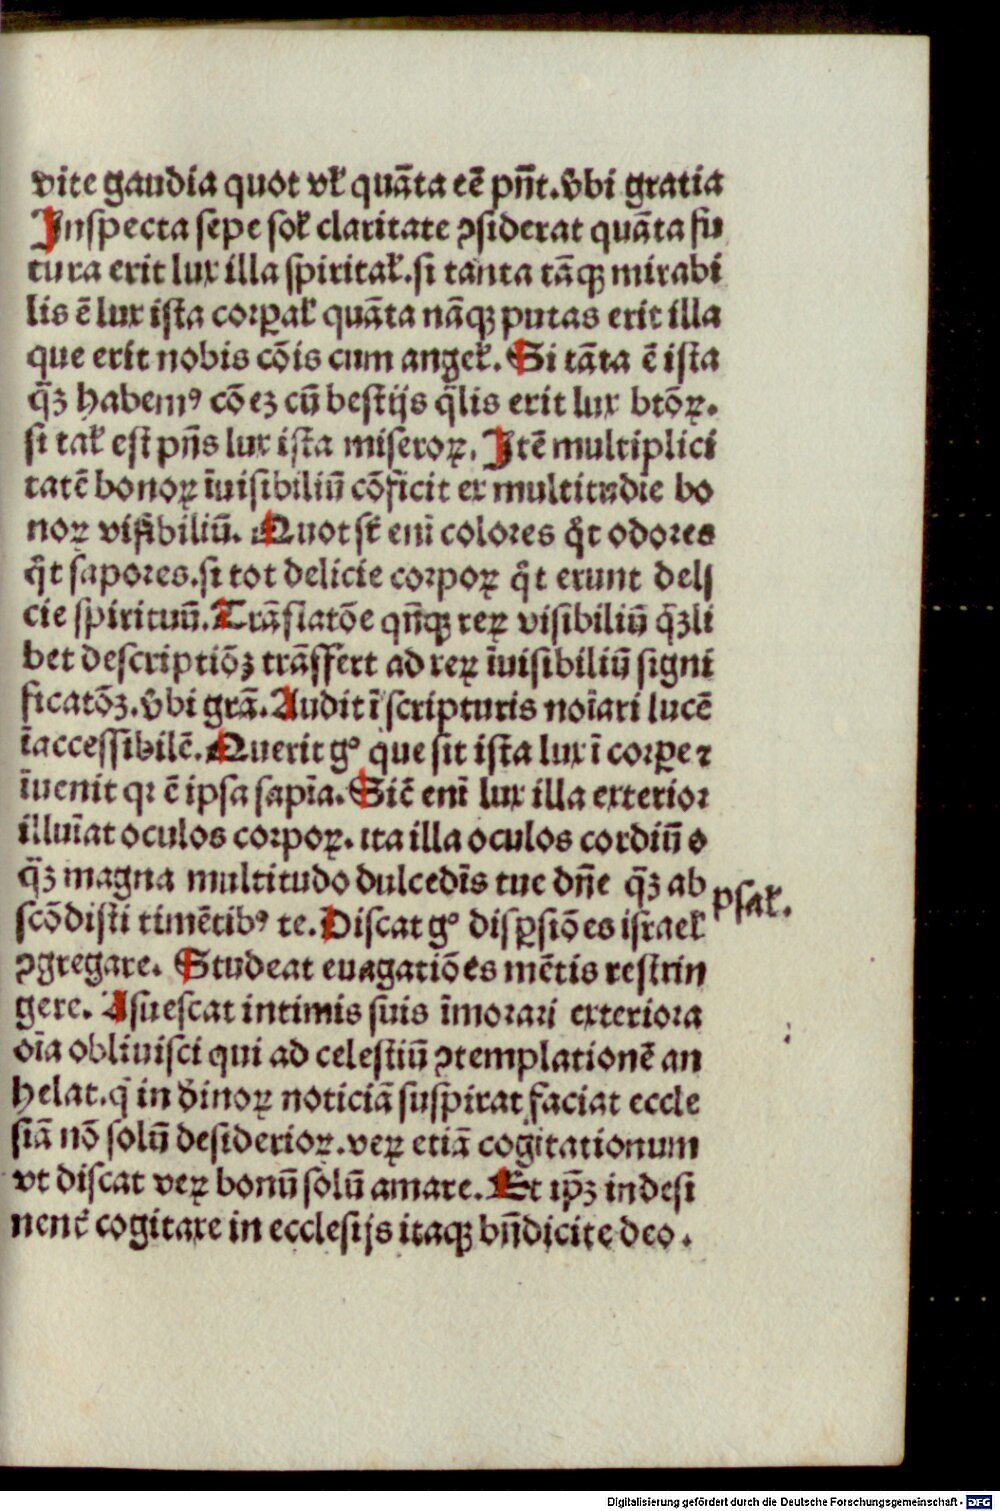 vite gaudia quot vꝉ quãta eẽ pñt. v̾bi gratia
Inspecta sepe soꝉ claritate ꝯsiderat quãta fu
tura erit lux illa spiritaꝉ. si tanta tãqꝫ mirabi
lis ẽ lux ista corꝑaꝉ quãta nãqꝫ putas erit illa
que erit nobis cõis cum angeꝉ. Si tãta ẽ ista
q̃ꝫ habemꝰ cõeꝫ cũ bestijs q̃lis erit lux btõꝝ.
si taꝉ est pñs lux ista miseroꝝ. Itẽ multiplici
tatẽ bonoꝝ ĩuisibiliũ cõficit ex multitudĩe bo
noꝝ visibiliũ. Quot st̃ enĩ colores q̃t odores
q̃t sapores. si tot delicie corpoꝝ q̃t erunt deli
cie spirituũ. Trãslatõe qñqꝫ reꝝ visibiliũ q̃ꝫli
bet descriptiõꝫ trãsfert ad reꝝ ĩuisibiliũ signi
ficatõꝫ. v̾bi grã. Audit ĩ scripturis noĩari lucẽ
ĩaccessibilẽ. Querit gͦ que sit ista lux ĩ corꝑe ⁊
ĩuenit qꝛ ẽ ipsa sapĩa. Sic̃ enĩ lux illa exterior
illuĩat oculos corpoꝝ. ita illa oculos cordiũ o
q̃ꝫ magna multitudo dulcedĩs tue dñe q̃ꝫ ab
scõdisti timẽtibꝰ te. Discat gͦ disꝑsiões israeꝉ
psaꝉ.
ꝯgregare. Studeat euagatiões mẽtis restrin
gere. Asuescat intimis suis ĩmorari exteriora
oĩa obliuisci qui ad celestiũ ꝯtemplationẽ an
helat. q̃ in diuinoꝝ noticiã suspirat faciat eccle
siã nõ solũ desiderioꝝ. veꝝ etiã cogitationum
vt discat veꝝ bonũ solũ amare. Et ip̃ꝫ indesi
nent̃ cogitare in ecclesijs itaqꝫ bñdicite deo.
Digitalisierung gefördert durch die Deutsche Forschungsgemeinschaft - DFG